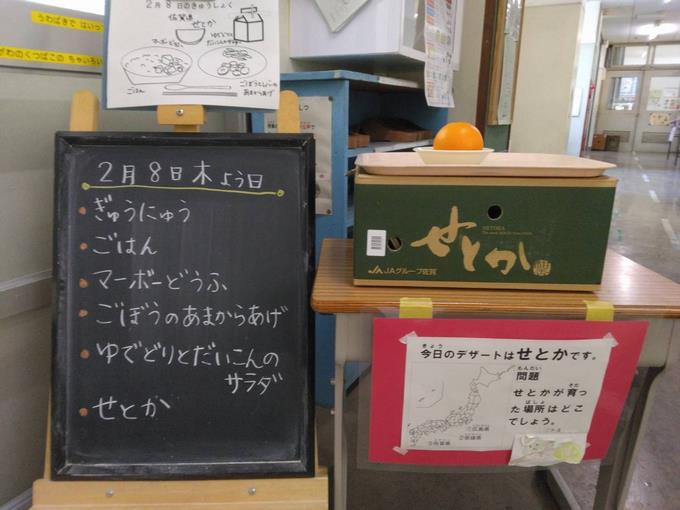 うわばきで はいっ
がわのくつばこの ちゃいろい
2月8日のきゅうしょく
佐賀県
せとか
マーボーどうふ
ゆでどりと
だいこんのサラダ
ごはん
ごぼうの
あまからあげ
2月8日木よう日
ぎゅうにゅう
ごはん
マーボーどうふ
ごぼうのあまからあげ
ゆでどりとだいこんの
サラダ
せとか
SETOKA
せとか
JAグループ佐賀
きょう
今日のデザートはせとかです。
もんだい
問題
そだ
せとかが育っ
ばしょ
た場所はどこ
でしょう。
①広島県
②愛媛県
③佐賀県